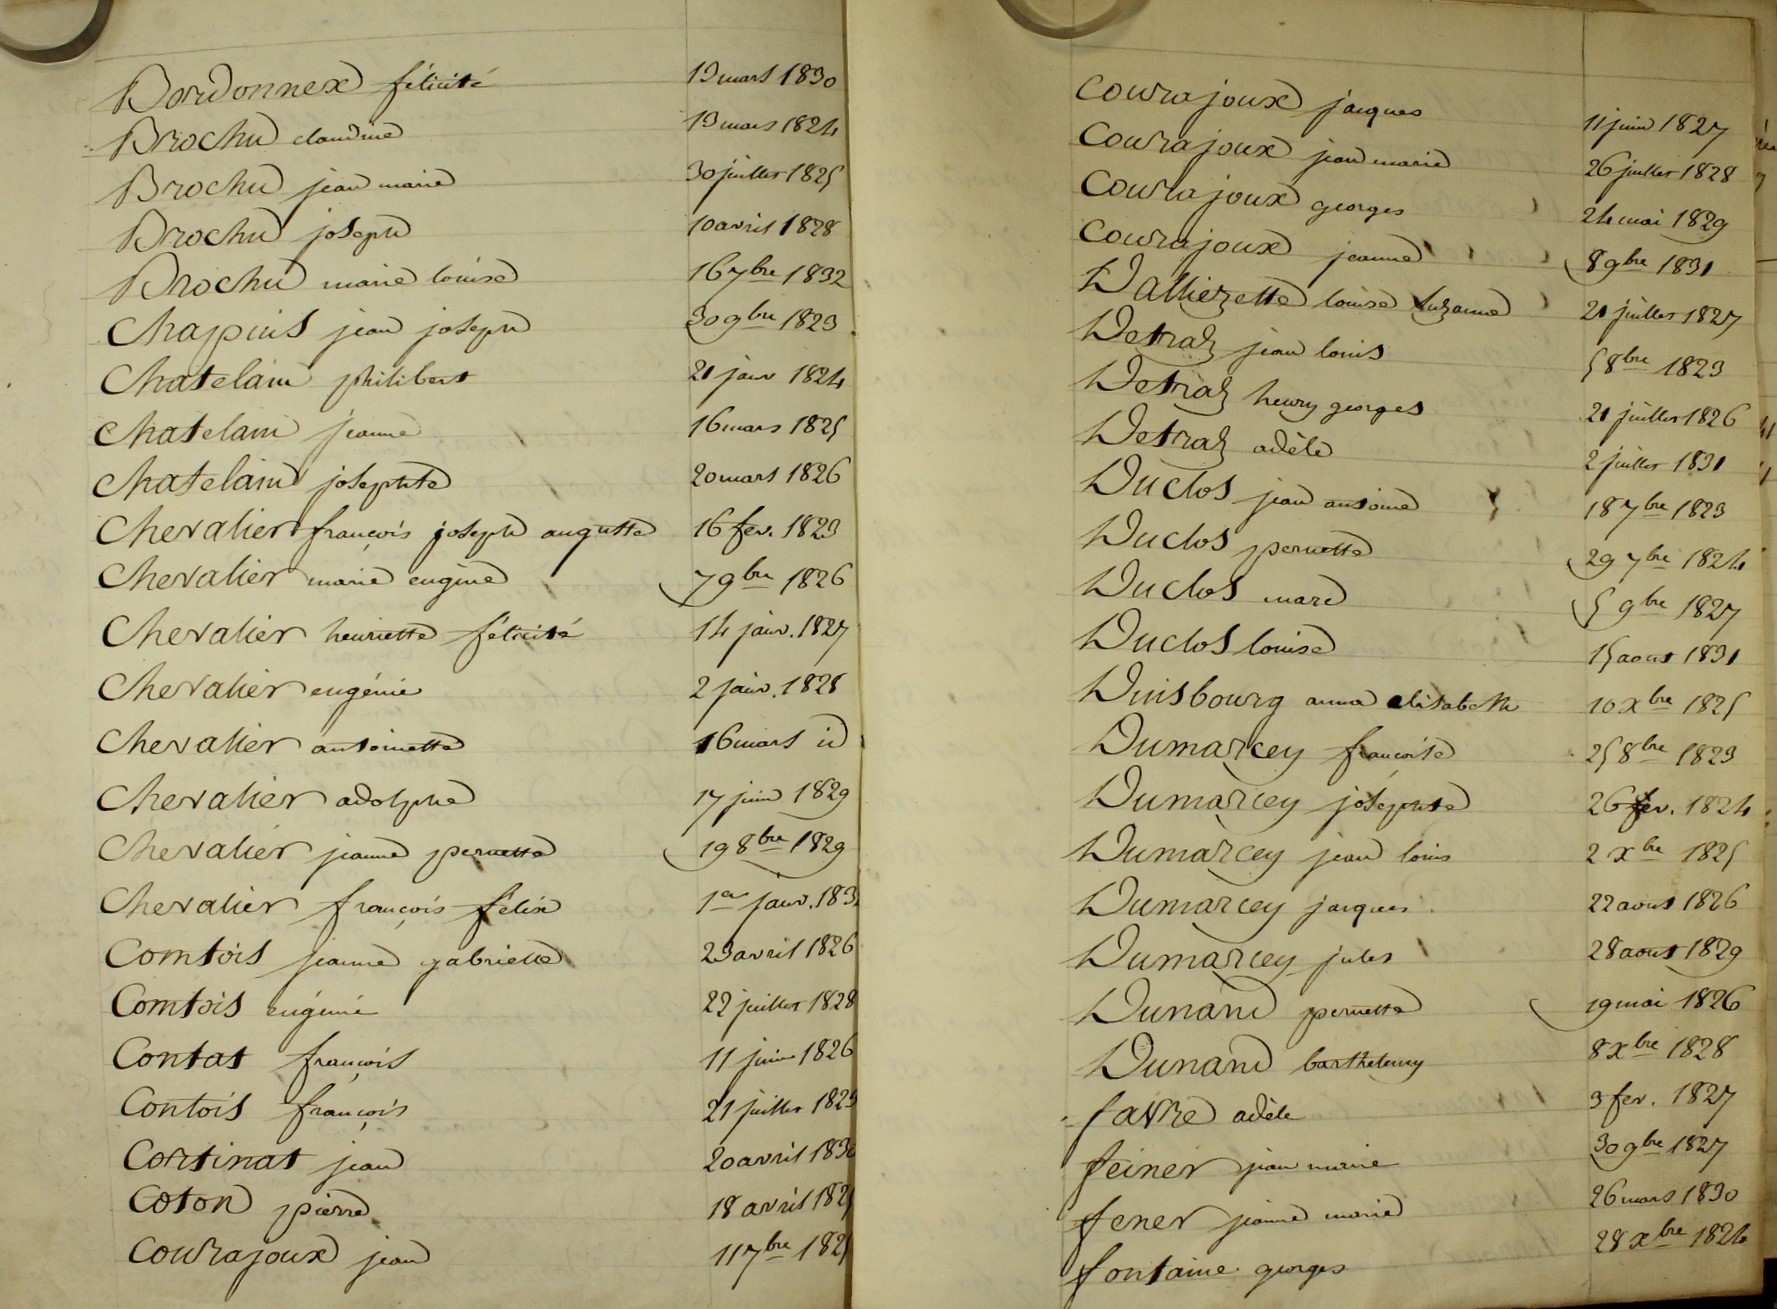 Bordonnex félicité 13 mars 1830
Brochu claudine 13 mars 1824
Brochu jean marie 30 juillet 1825
Brochu joseph 10 avril 1828
Brochu marie louise 16 7bre 1832
Chappuis jean joseph 30 9bre 1823
Chatelain philibert 21 janv 1824
Chatelain jeanne 16 mars 1825
Chatelain josephte 20 mars 1826
Chevalier françois joseph auguste 16 fev. 1823
Chevalier marie eugine 7 9bre 1826
Chevalier henriette félicité 14 janv. 1827
Chevalier eugénie 2 janv. 1828
Chevalier antoinette 16 mars id
Chevalier adolphe 17 juin 1829
Chevalier jeanne pernette 19 8bre 1829
Chevalier françois félix 1er janv. 183
Comtois jeanne gabrielle 23 avril 1826
Comtois eugénie 22 juillet 1828
Contat françois 11 juin 1826
Contois françois 21 juillet 1823
Cortinat jean 20 avril 1830
Coton pierre 18 avril 1825
Courajoux jean 11 7bre 1825
Courajoux jacques 11 juin 1827
Courajoux jean marie 26 juillet 1828
Courajoux georges 24 mai 1829
Courajoux jeanne 8 9bre 1831
Dallierette louise suzanne 21 juillet 1827
Detraz jean louis 5 8bre 1823
Detraz henry georges 21 juillet 1826
Detraz adèle 2 juillet 1831
Duclos jean antoine 18 7bre 1823
Duclos pernette 29 7bre 1824
Duclos marc 5 9bre 1827
Duclos louise 15 aout 1831
Duisbourg anna elisabeth 10 Xbre 1825
Dumarcey françoise 25 8bre 1823
Dumarcey josephte 26 fev. 1824
Dumarcey jean louis 2 Xbre 1825
Dumarcey jacques 22 aout 1826
Dumarcey jules 28 aout 1829
Dunand pernette 19 mai 1826
Dunand barthelemy 8 Xbre 1828
favre adèle 3 fev. 1827
feiner jean marie 30 9bre 1827
fener jeanne marie 26 mars 1830
fontaine georges 28 Xbre 1824